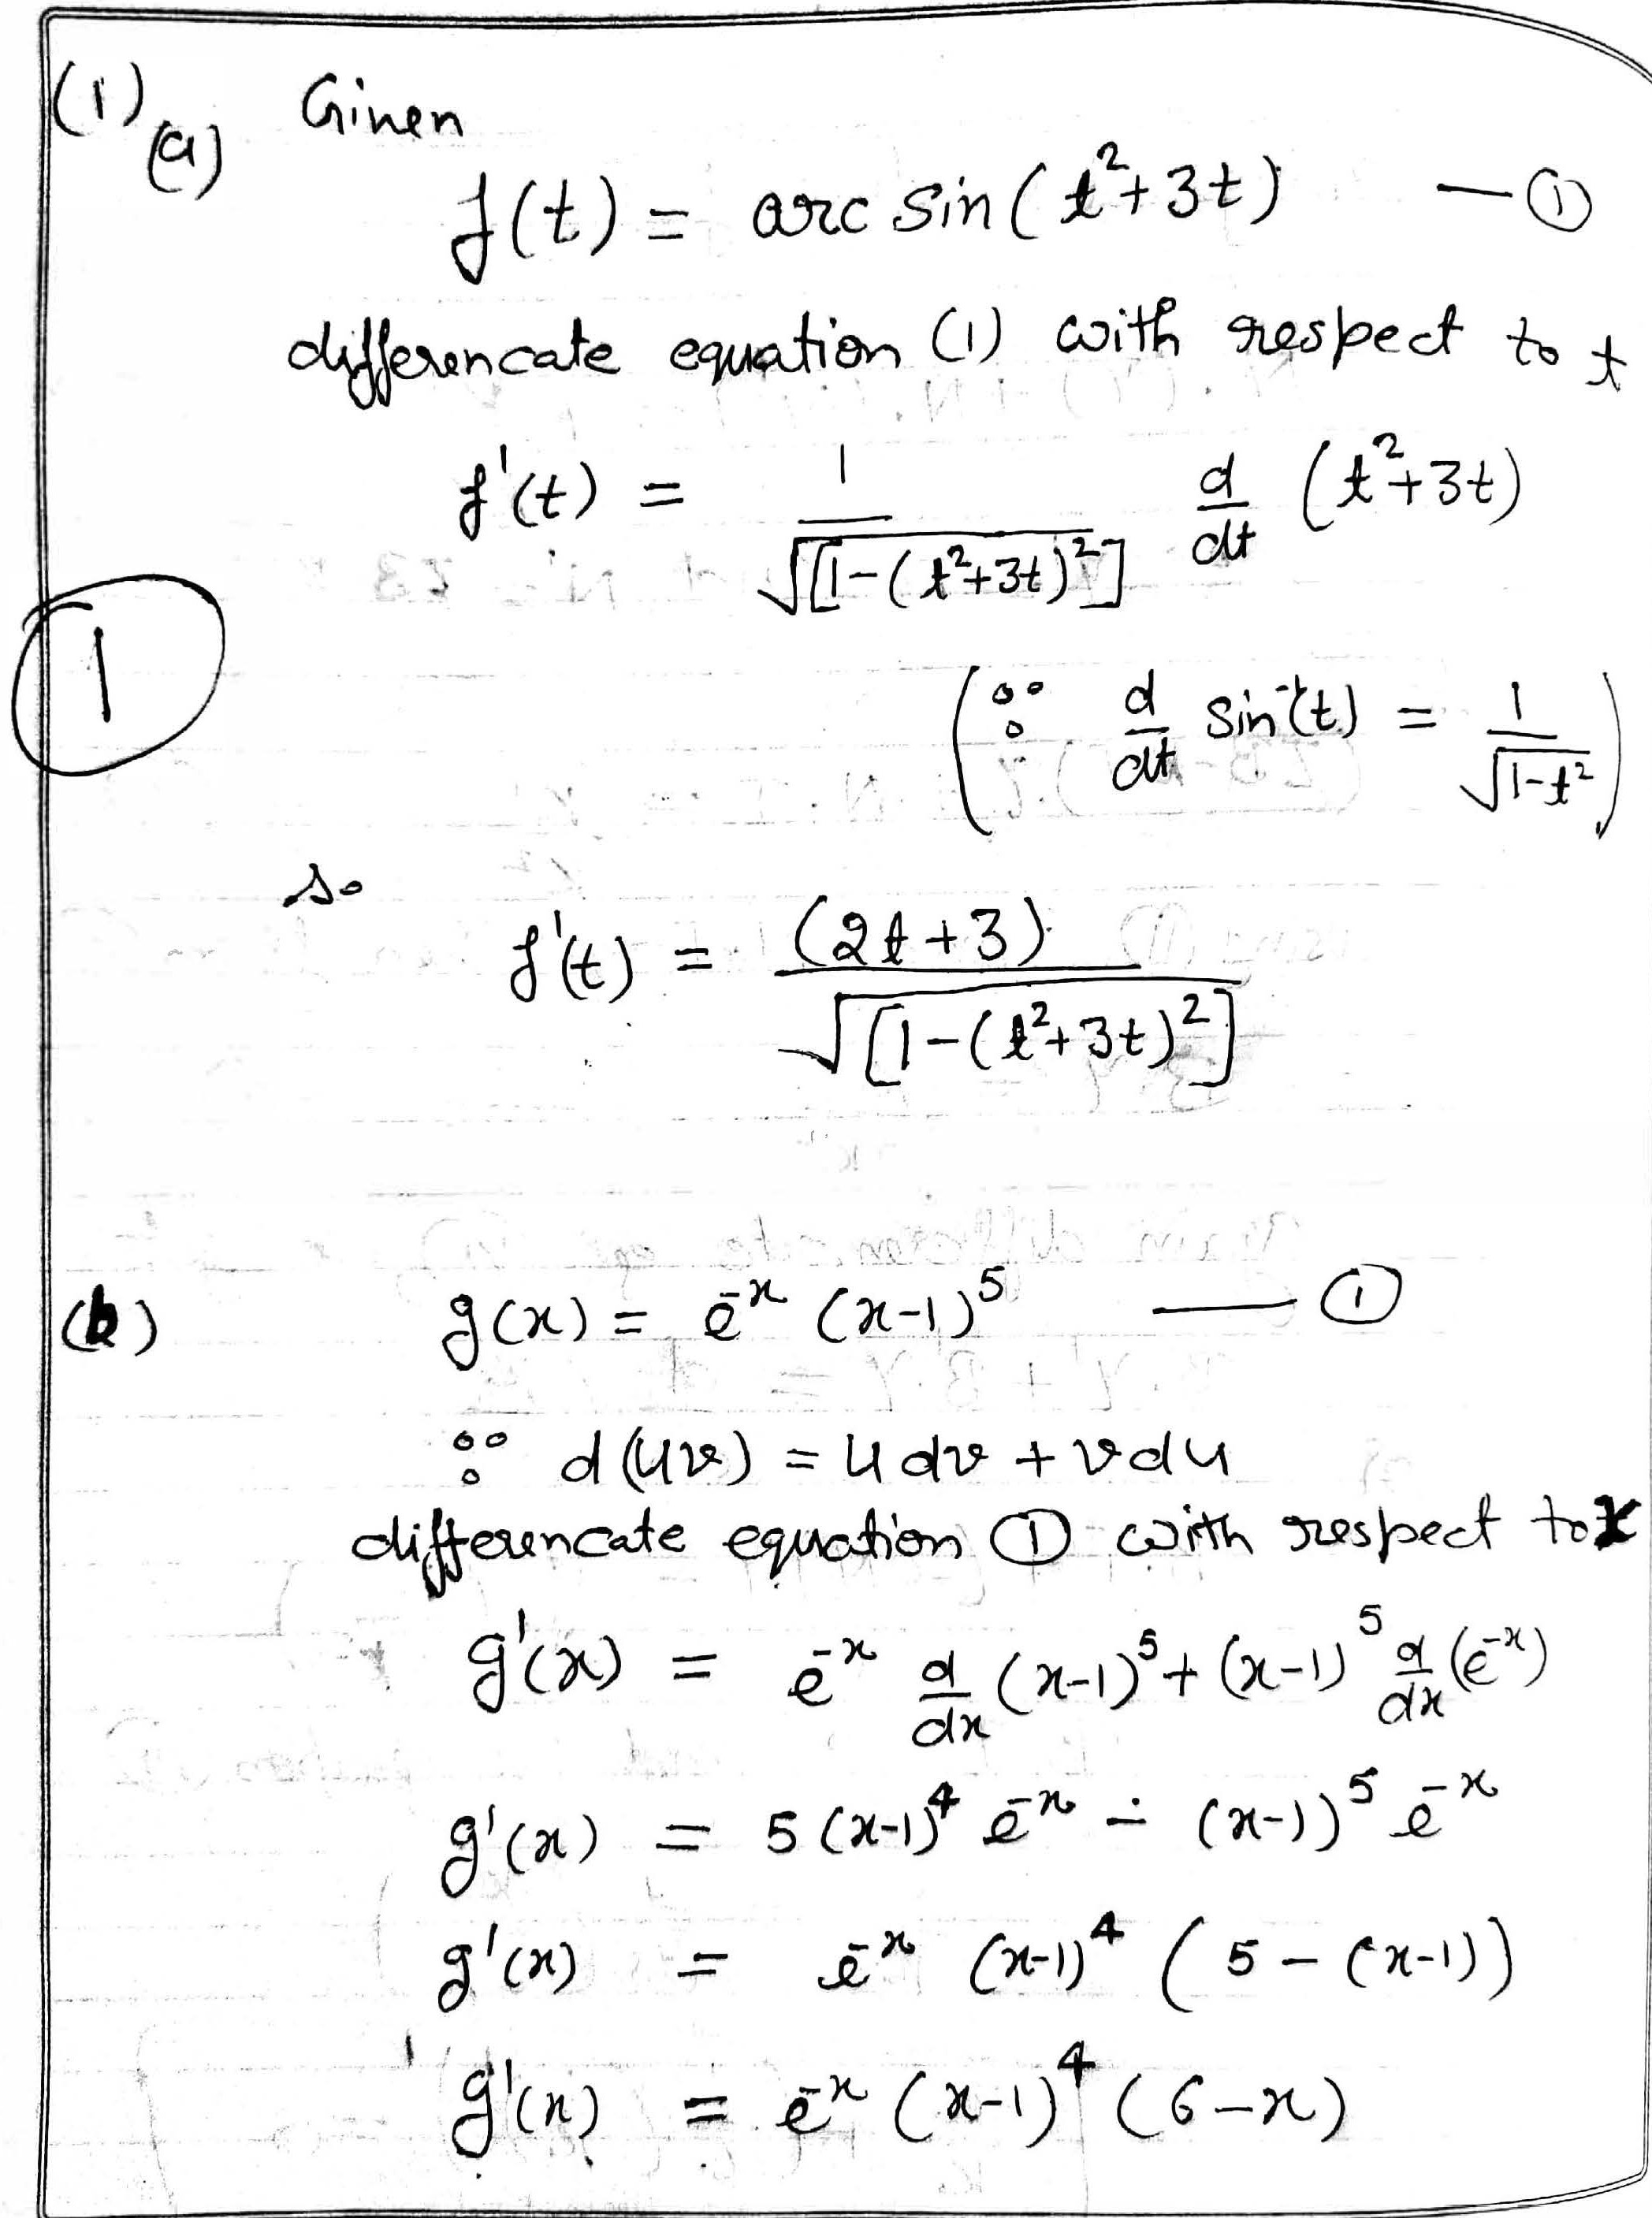 (1) (a) Ginen
f(t) = arc sin(t²+3t) —①
differencate equation (1) with respect to t
f'(t) = 1/√[1-(t²+3t)²] d/dt (t²+3t)
1
(∵ d/dt sin⁻¹(t) = 1/√1-t²)
so
f'(t) = (2t+3)/√[1-(t²+3t)²]
(b) g(x) = e⁻ˣ (x-1)⁵ —①
∵ d(uv) = u dv + v du
differencate equation ① with respect to x
g'(x) = e⁻ˣ d/dx (x-1)⁵ + (x-1)⁵ d/dx (e⁻ˣ)
g'(x) = 5(x-1)⁴ e⁻ˣ - (x-1)⁵ e⁻ˣ
g'(x) = e⁻ˣ (x-1)⁴ (5 - (x-1))
g'(x) = e⁻ˣ (x-1)⁴ (6-x)